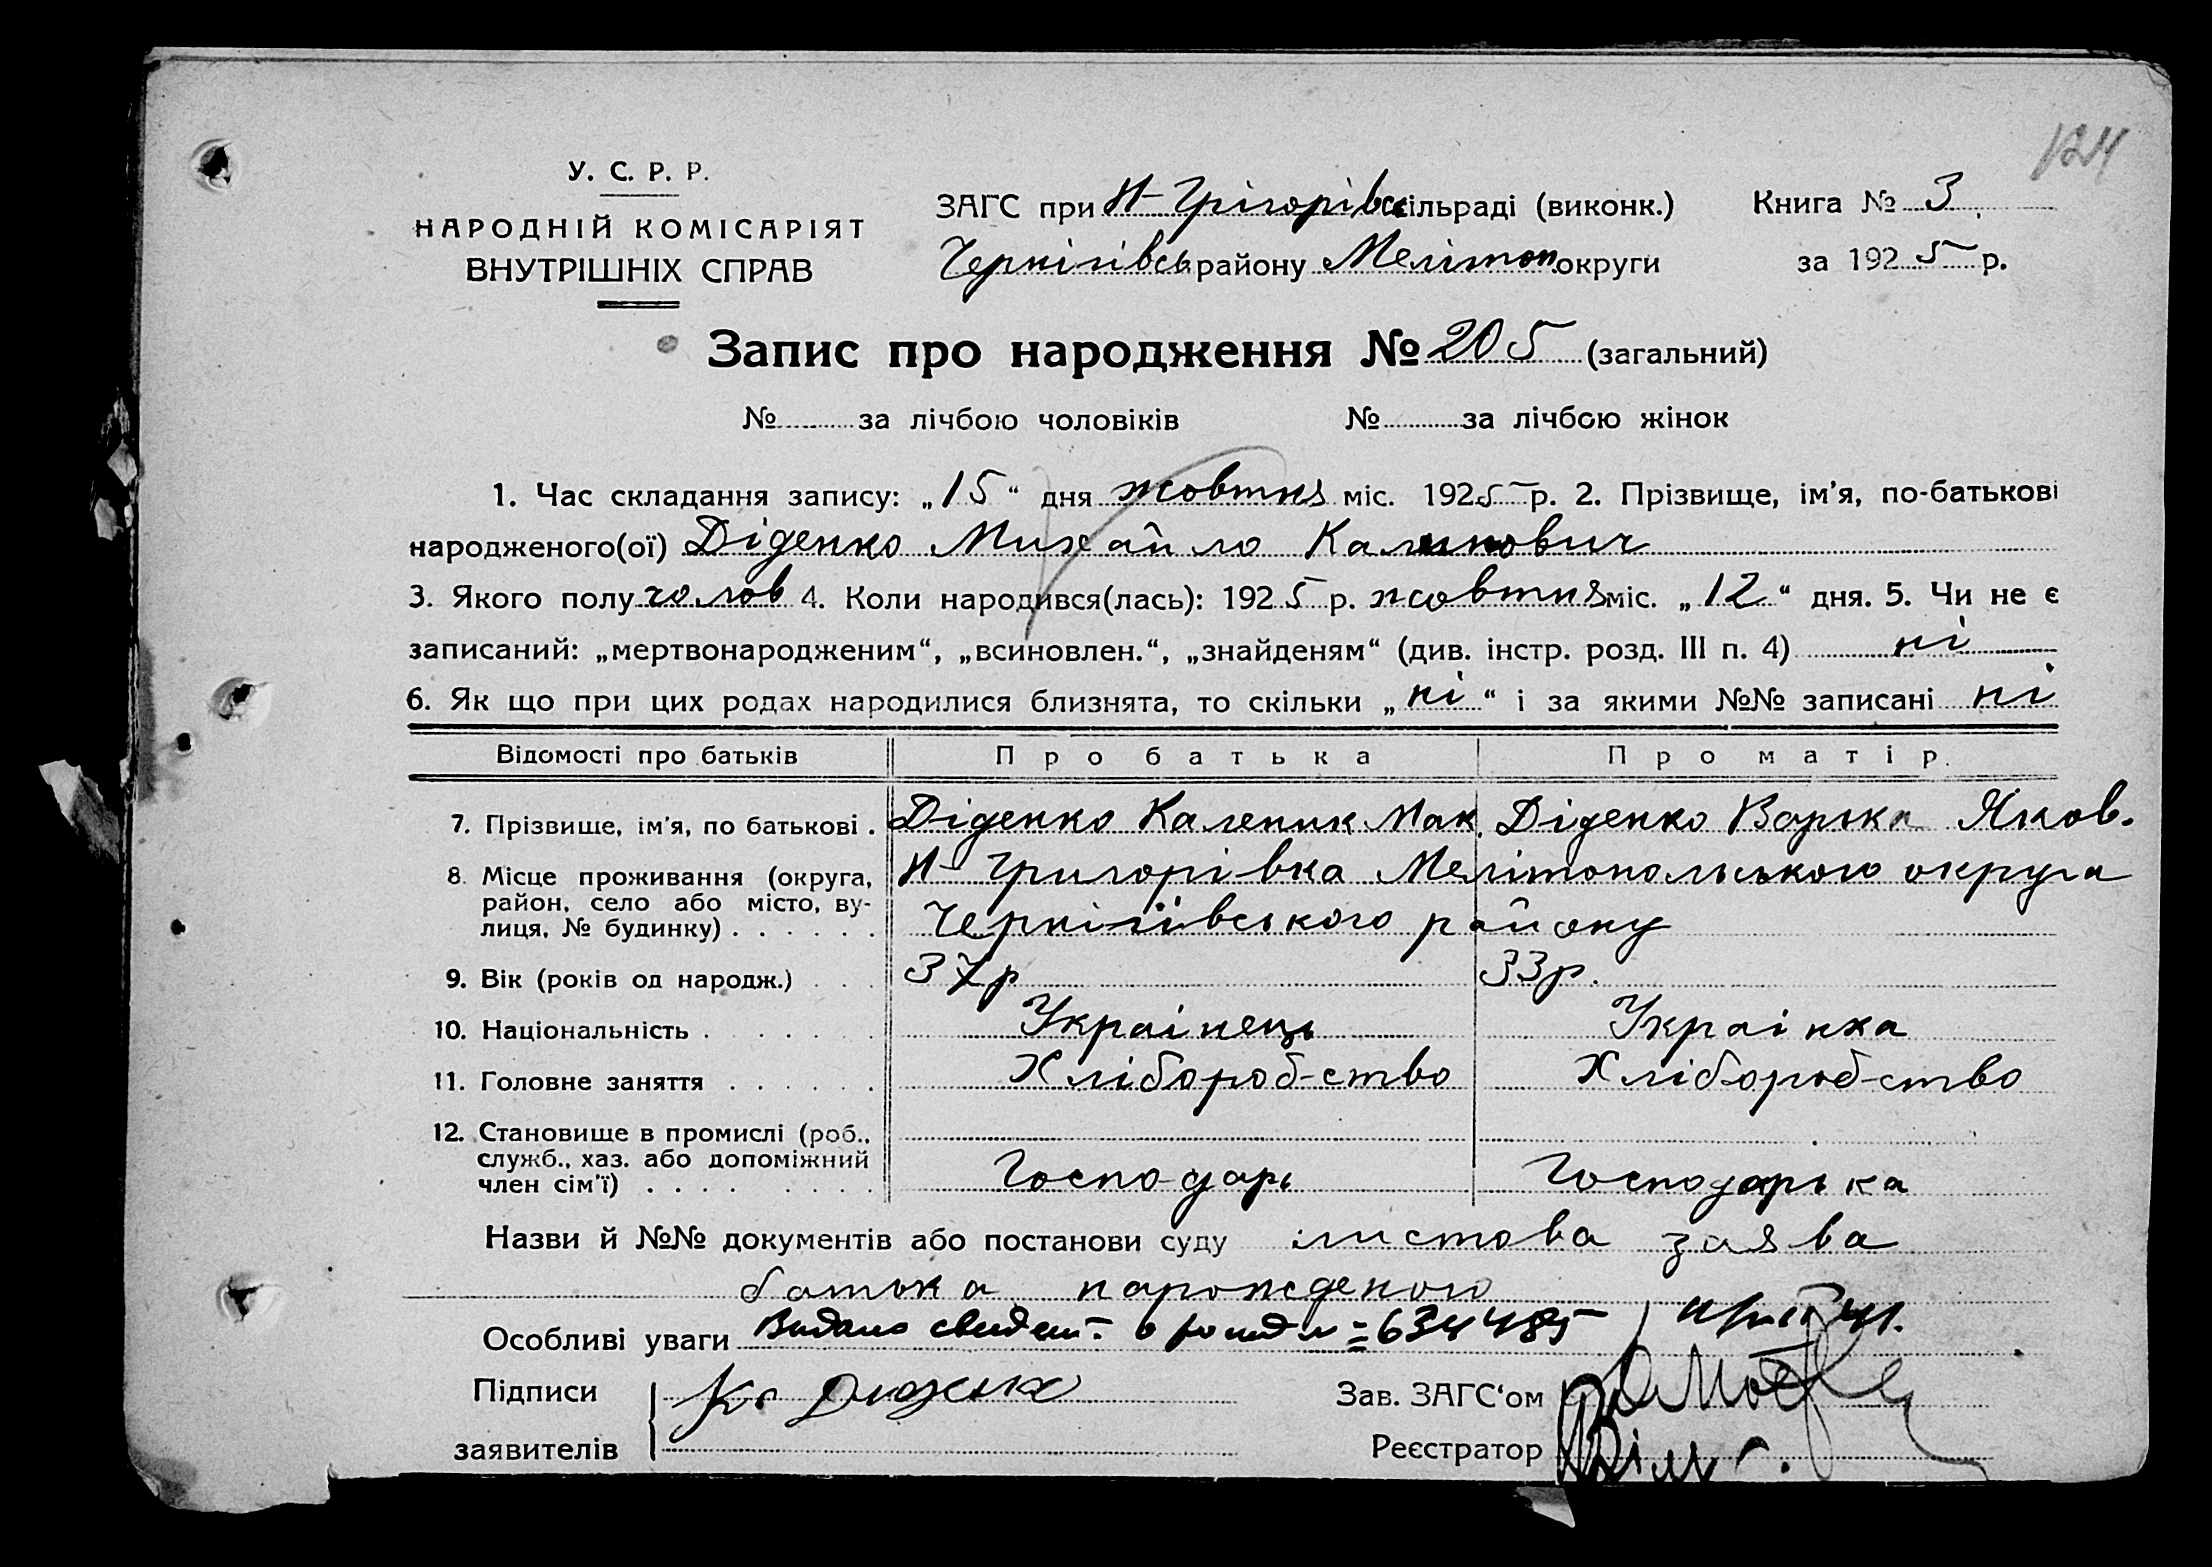 124
У. С. Р. Р.
НАРОДНІЙ КОМІСАРІЯТ
ВНУТРІШНІХ СПРАВ
ЗАГС при Н-Грігорівс сільраді (виконк.) Книга № 3
Чернігівсь району Мелітоп. округи за 1925 р.
Запис про народження № 205 (загальний)
№ за лічбою чоловіків № за лічбою жінок
1. Час складання запису: „15“ дня жовтня міс. 1925 р. 2. Прізвище, ім'я, по-батькові
народженого(ої) Діденко Михайло Калинович
3. Якого полу чолов 4. Коли народився(лась): 1925 р. жовтня міс. „12“ дня. 5. Чи не є
записаний: „мертвонародженим“, „всиновлен.“, „знайденям“ (див. інстр. розд. III п. 4) ні
6. Як що при цих родах народилися близнята, то скільки „ні“ і за якими №№ записані ні
Відомості про батьків Про батька Про матір.
7. Прізвище, ім'я, по батькові . Діденко Каленик Мак. Діденко Варька Яков.
8. Місце проживання (округа, Н-Григорівка Мелітопольського округа
район, село або місто, ву-
лиця, № будинку) . . . . . . Чернігівського району
9. Вік (років од народж.) . . . 37р 33р.
10. Національність . . . . . . Українець Українка
11. Головне заняття . . . . . . Хлібороб-ство Хлібороб-ство
12. Становище в промислі (роб.,
служб., хаз. або допоміжний
член сім'ї) . . . . . . . . Господарь Господарька
Назви й №№ документів або постанови суду листова заява
батька нарожденого
Особливі уваги Видано свидет. о рожд № 634485
Підписи К. Диденко Зав. ЗАГС'ом
заявителів Реєстратор